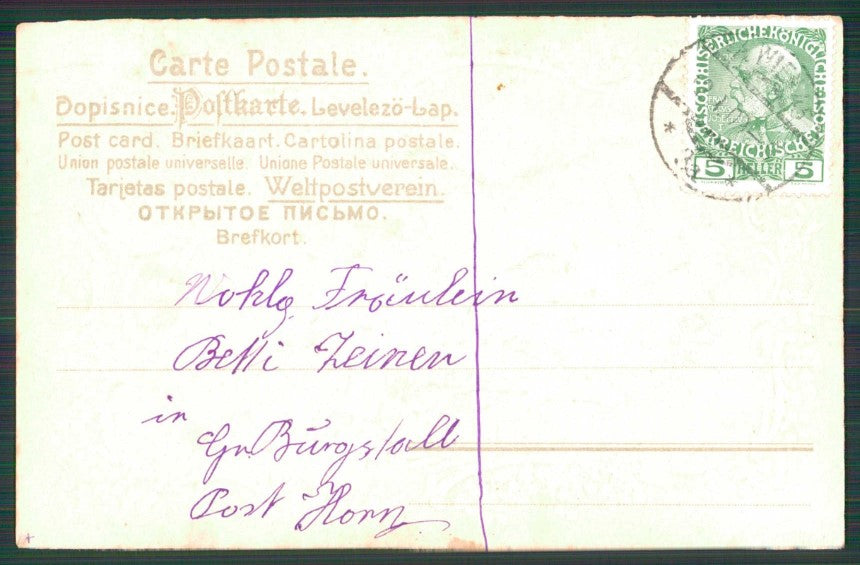 Carte Postale.
Dopisnice. Postkarte. Levelező-Lap.
Post card. Briefkaart. Cartolina postale.
Union postale universelle. Unione Postale universale.
Tarjetas postale. Weltpostverein.
ОТКРЫТОЕ ПИСЬМО.
Brefkort.
KAISERLICHEKÖNIGLICHE
ÖSTERREICHISCHE
5 HELLER 5
WIEN
Wohlg Fräulein
Betti Zeinen
in
Gr Burgstall
Post Horn